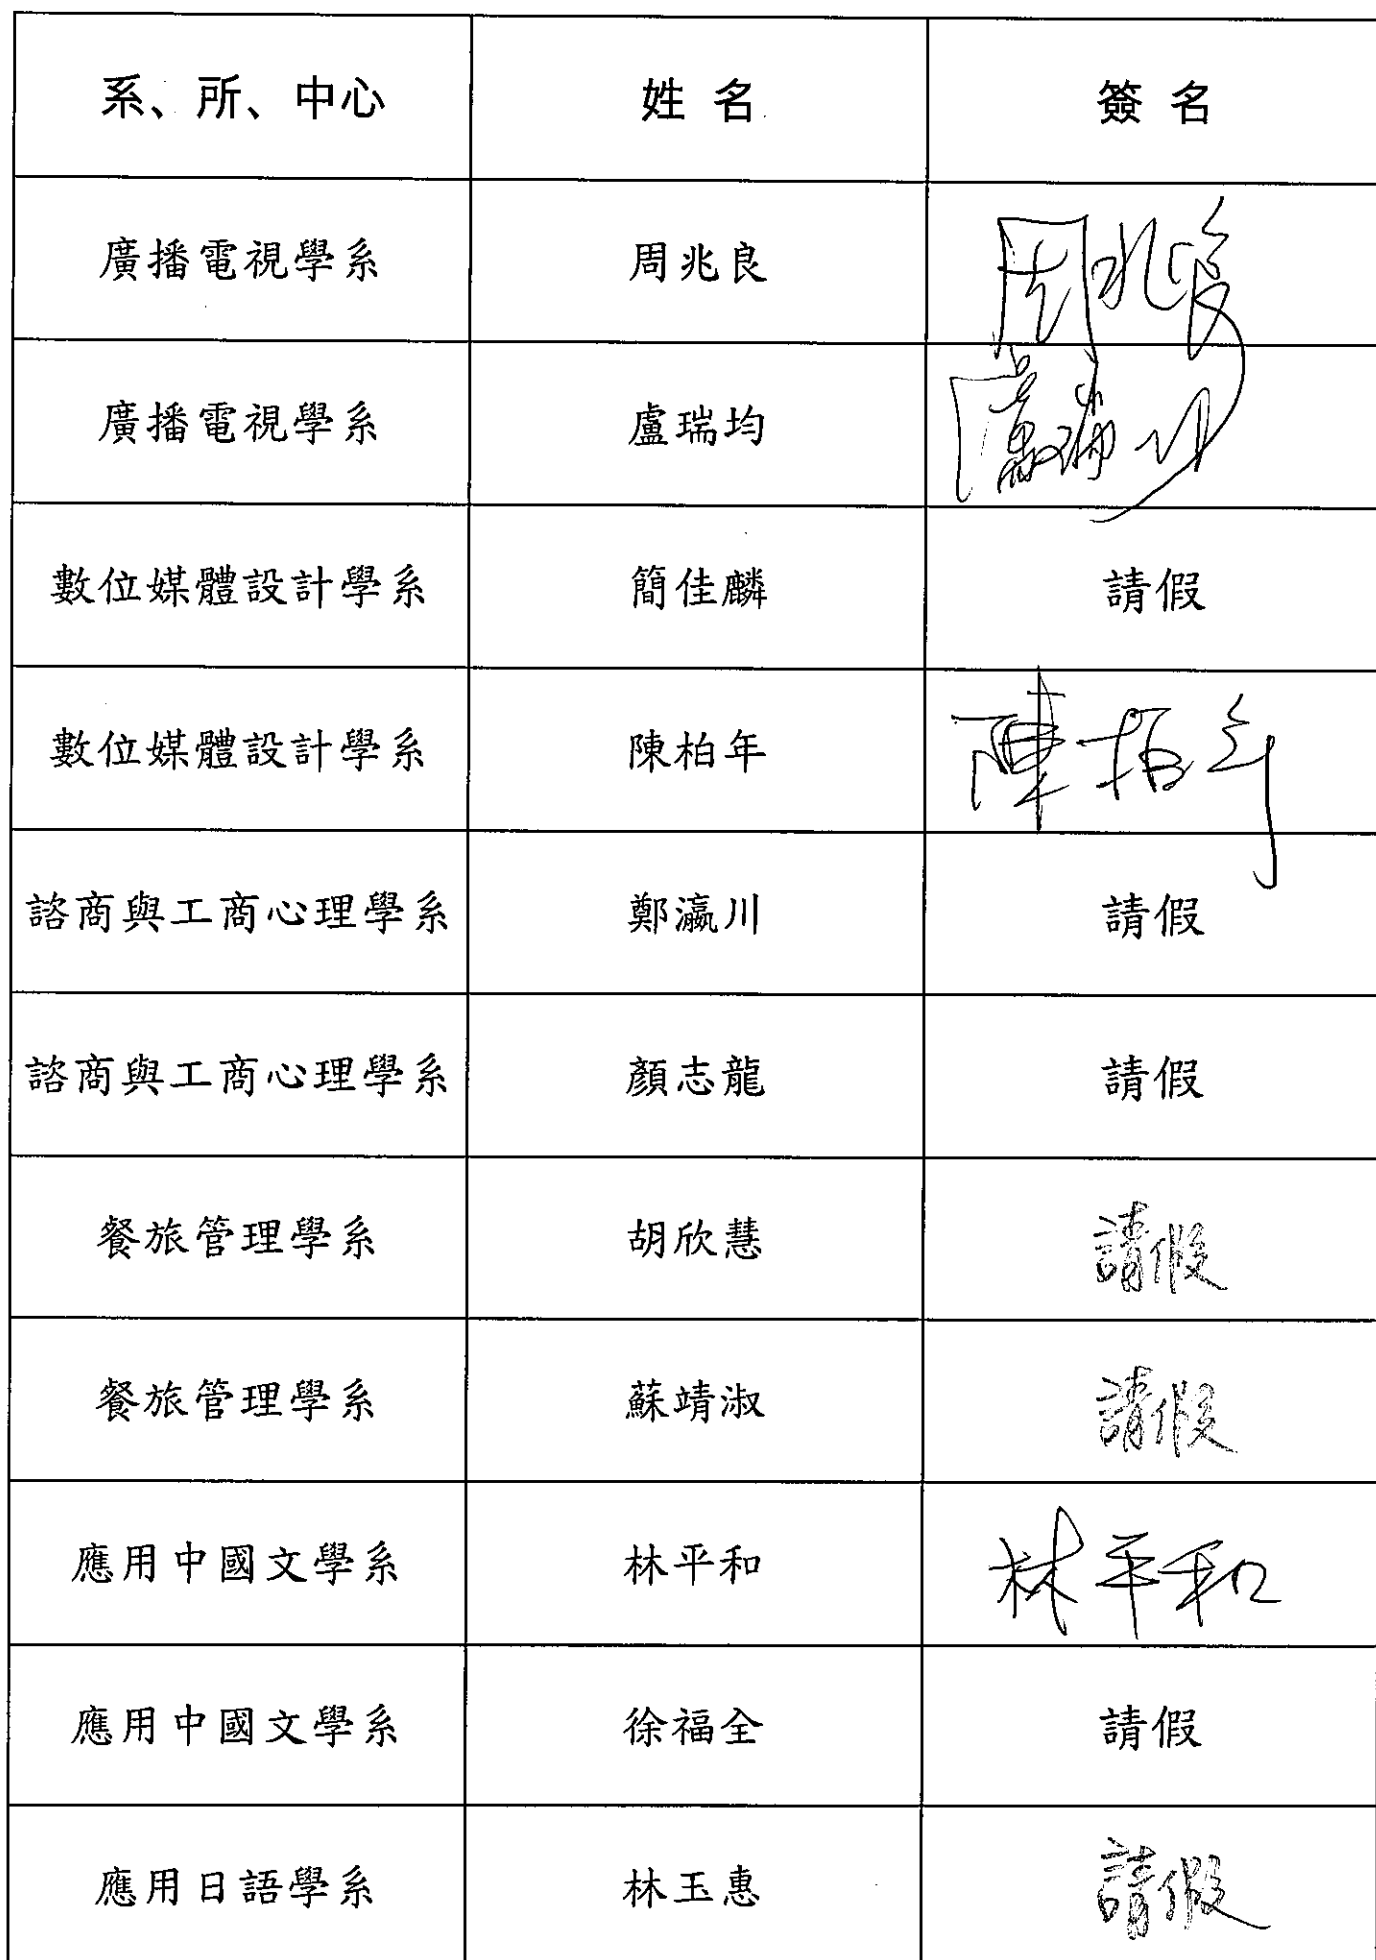 系、所、中心 姓名 簽名
廣播電視學系 周兆良 周兆良
廣播電視學系 盧瑞均 盧瑞均
數位媒體設計學系 簡佳麟 請假
數位媒體設計學系 陳柏年 陳柏年
諮商與工商心理學系 鄭瀛川 請假
諮商與工商心理學系 顏志龍 請假
餐旅管理學系 胡欣慧 請假
餐旅管理學系 蘇靖淑 請假
應用中國文學系 林平和 林平和
應用中國文學系 徐福全 請假
應用日語學系 林玉惠 請假